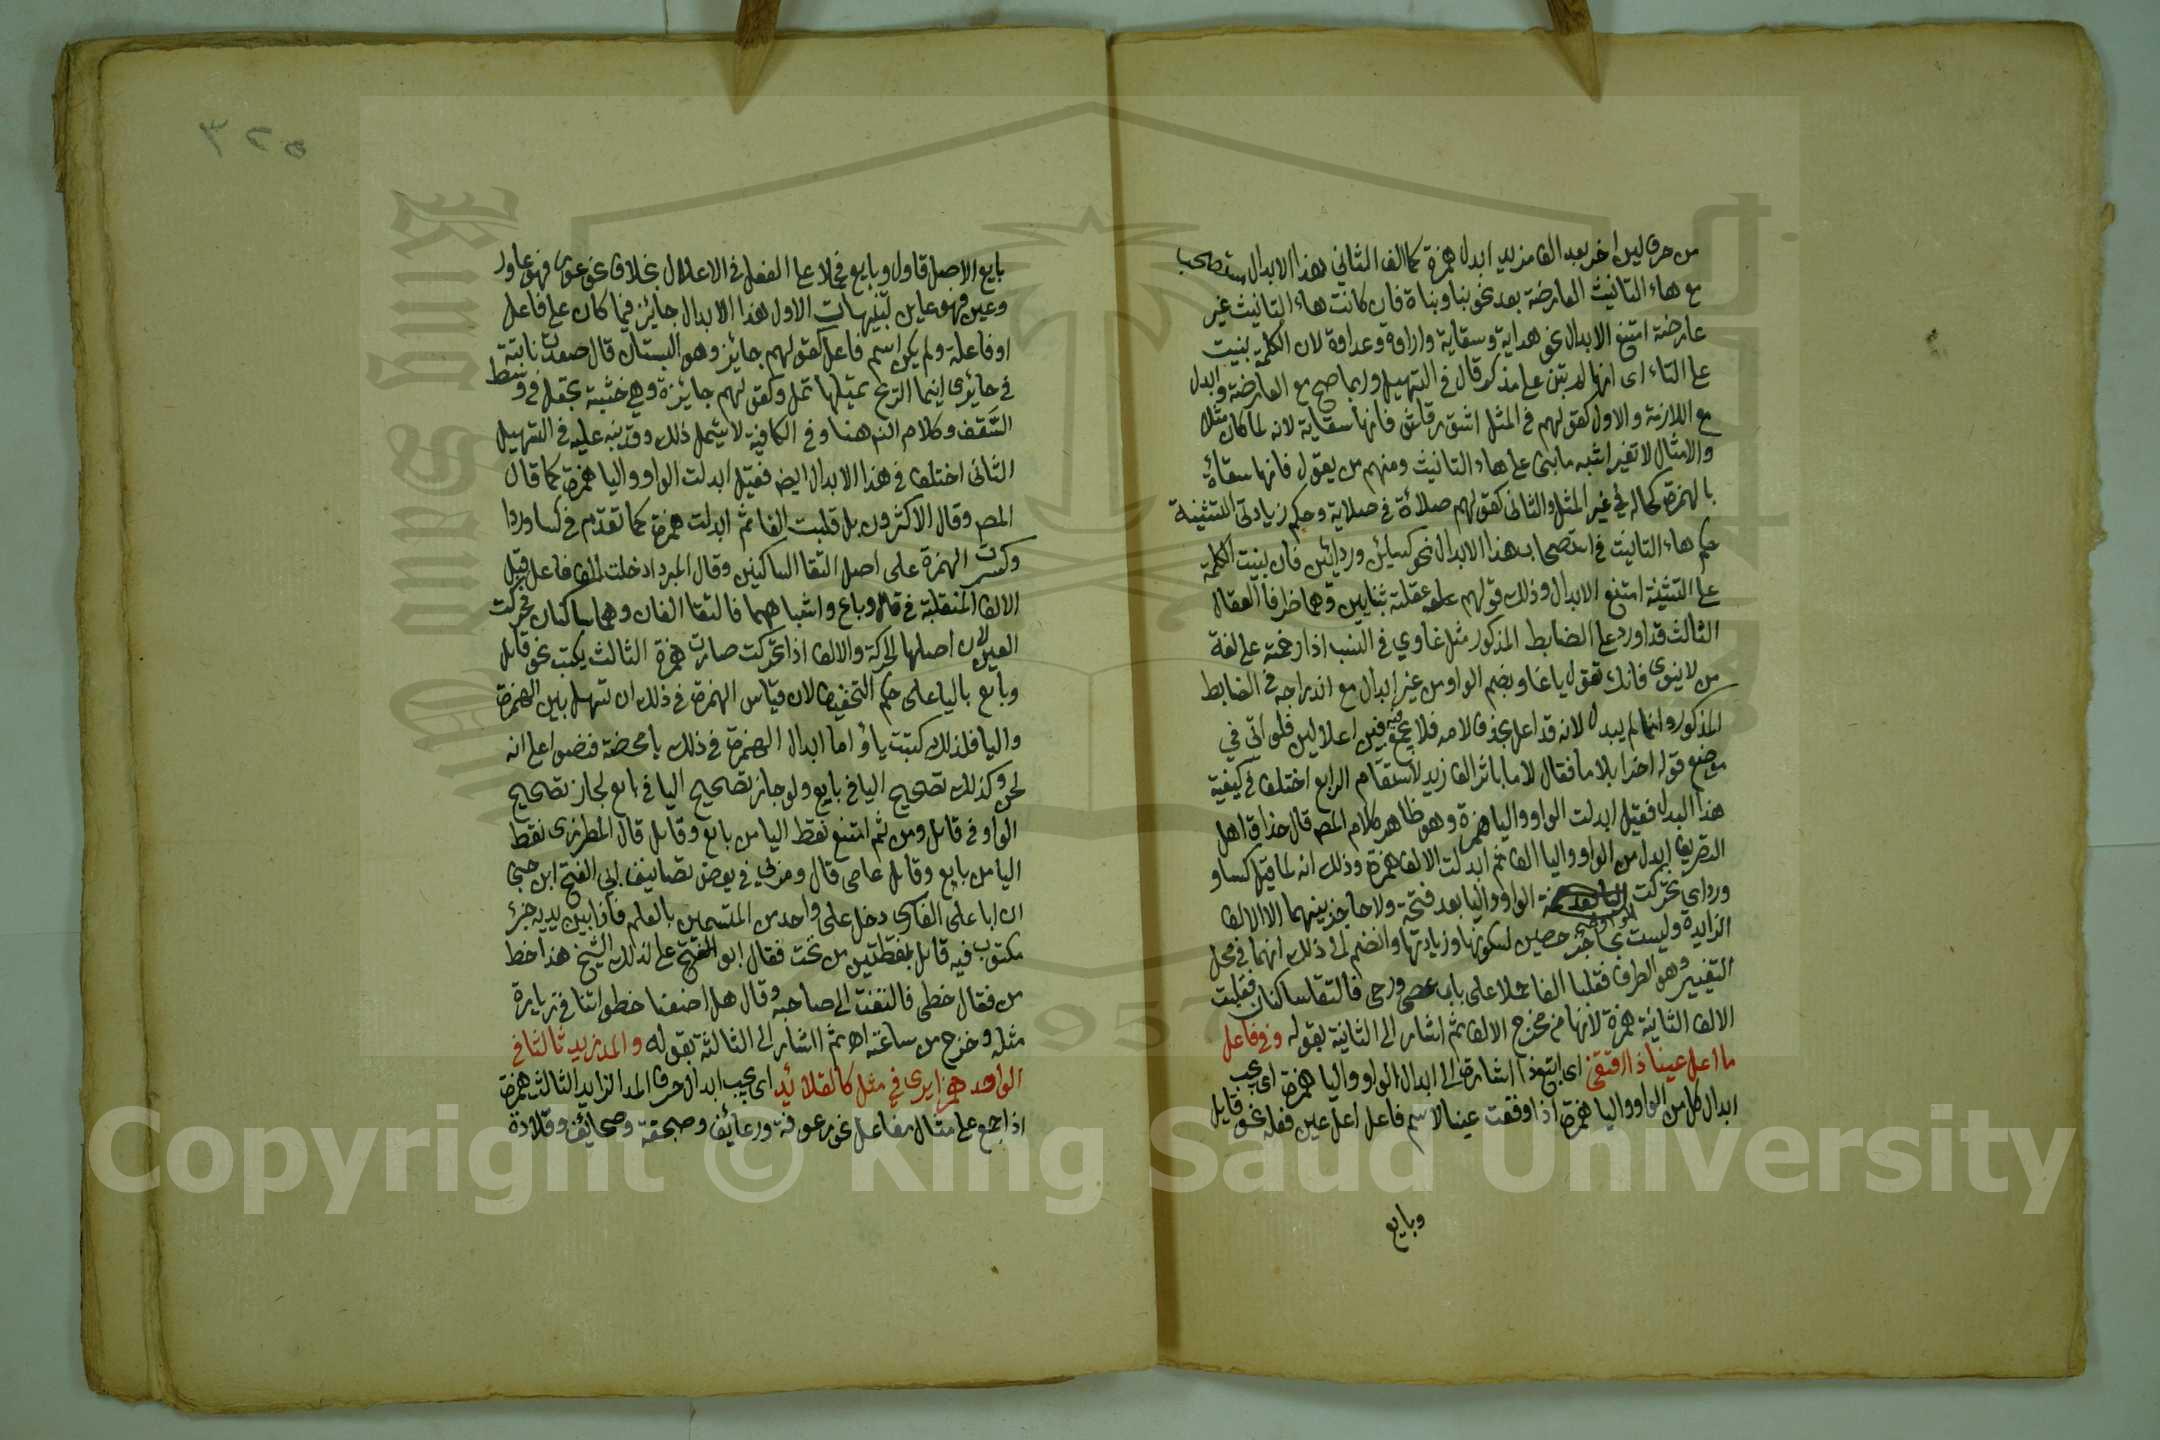 من حرف لين اخر بعد الف مزيد ابدل همزة كما الف الثاني هذا الابدال يستصحب
مع هاء التانيث العارضة بعد نحو بنا وبناة فان كانت هاء التانيث غير
عارضة امتنع الابدال نحو هداية وسقاية واداوة وعداوة لان الكلمة بنيت
على التاء اى انها لم تبن على مذكر قال في التسهيل وربما صح مع العارضة وابدل
مع اللازمة والاول كقولهم في المثل اسق رقاش فانها سقاية لانه لما كان مثلا
والامثال لا تغير اشبه ما بنى على هاء التانيث ومنهم من يقول فانها سقاءة
بالهمزة كحاله في غير المثل والثاني كقولهم صلاءة في صلاية وحكم زيادتى التثنية
حكم هاء التانيث في استصحاب هذا الابدال نحو كسائين وردائين فان بنيت الكلمة
على التثنية امتنع الابدال وذلك قولهم عقلته بثنايين وهما طرفا العقال
الثالث قد اورد على الضابط المذكور مثل غاوي في النسب اذا رخمته على لغة
من لا ينوى فانك تقول يا غاو بضم الواو من غير ابدال مع اندراجه في الضابط
المذكور وانما لم يبدل لانه قد اعل بحذف لامه فلا يجمع فيه بين اعلالين فلو اتى في
موضع قوله اخرا بلاما فقال لاما باثر الف زيد لاستقام الرابع اختلف في كيفية
هذا البدل فقيل ابدلت الواو واليا همزة وهو ظاهر كلام المص قال حذاق اهل
التصريف ابدل من الواو واليا الف ثم ابدلت الالف همزة وذلك انه لما قيل كساو
ورداي تحركت الواو واليا بعد فتحة ولا حاجز بينهما الا الالف
الزايدة وليست بحاجز حصين لسكونها وزيادتها وانضم الى ذلك انهما في محل
التغيير وهو الطرف فقلبا الفا حملا على باب عصى ورحى فالتقا ساكنان فقلبت
الالف الثانية همزة لانها من مخرج الالف ثم اشار الى الثانية بقوله وفي فاعل
ما اعل عينا ذا اقتفى اى اتبع ذا اشارة الى ابدال الواو واليا همزة اى يجب
ابدال كل من الواو واليا همزة اذا وقعت عينا لاسم فاعل اعل عين فعله نحو قايل
وبايع
٣٢٥
بايع الاصل قاول وبايع فحملا على الفعل في الاعلال بخلاف نحو عور فهو عاور
وعين فهو عاين تنبيهات الاول هذا الابدال جايز فيما كان على فاعل
او فاعلة ولم يكن اسم فاعل كقولهم جائز وهو البستان قال صعدة نابتة
في حائر اينما الريح تميلها تمل وكقولهم جايزة وهي خشبة تجعل في وسط
السقف وكلام الناظم هنا وفي الكافية لا يشمل ذلك وقد نبه عليه في التسهيل
الثانى اختلف في هذا الابدال ايضا فقيل ابدلت الواو واليا همزة كما قال
المص وقال الاكثرون بل قلبت الفا ثم ابدلت همزة كما تقدم في كسا وردا
وكسرت الهمزة على اصل التقا الساكنين وقال المبرد ادخلت الف فاعل قبل
الالف المنقلبة في قال وباع واشباههما فالتقا الفان وهما ساكنان فحركت
العين لان اصلها الحركة والالف اذا تحركت صارت همزة الثالث يكتب نحو قايل
وبايع باليا على حكم التخفيف لان قياس الهمزة في ذلك ان تسهل بين الهمزة
واليا فلذلك كتبت يا واما ابدال الهمزة في ذلك يا محضة فنصوا على انه
لحن وكذلك تصحيح اليا في بايع ولو جاز تصحيح اليا في بايع لجاز تصحيح
الواو في قايل ومن ثم امتنع نقط اليا من بايع وقايل قال المطرزى نقط
اليا من بايع وقايل عامى قال ومر بي في بعض تصانيف ابي الفتح ابن جنى
ان ابا على الفارسى دخل على واحد من المتسمين بالعلم فاذا بين يديه جزء
مكتوب فيه قايل بنقطتين من تحت فقال ابو على لذلك الشيخ هذا خط
من فقال خطى فالتفت الى صاحبه وقال هل اضعنا خطواتنا في زيارة
مثله وخرج من ساعته اه ثم اشار الى الثالثة بقوله والمد زيد ثالثا في
الواحد همزا يرى في مثل كالقلائد اى يجب ابدال حرف المد الزايد الثالث همزة
اذا جمع على مثال مفاعل نحو رعوفة ورعائف وصحيفة وصحائف وقلادة